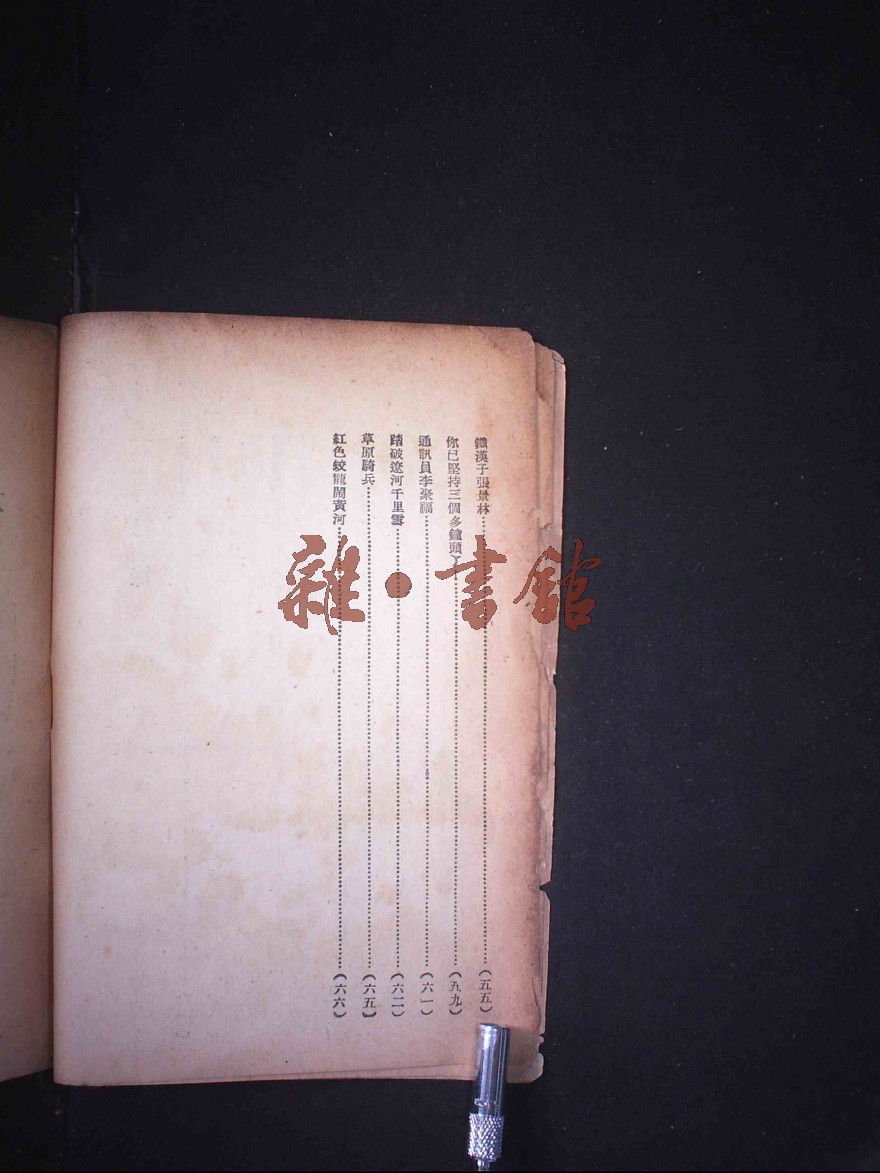 鐵漢子張景林……(五五)
你已堅持三個多鐘頭了……(五九)
通訊員李聚福……(六一)
踏破遼河千里雪……(六二)
草原騎兵……(六五)
紅色蛟龍鬧黃河……(六六)
雜·書館